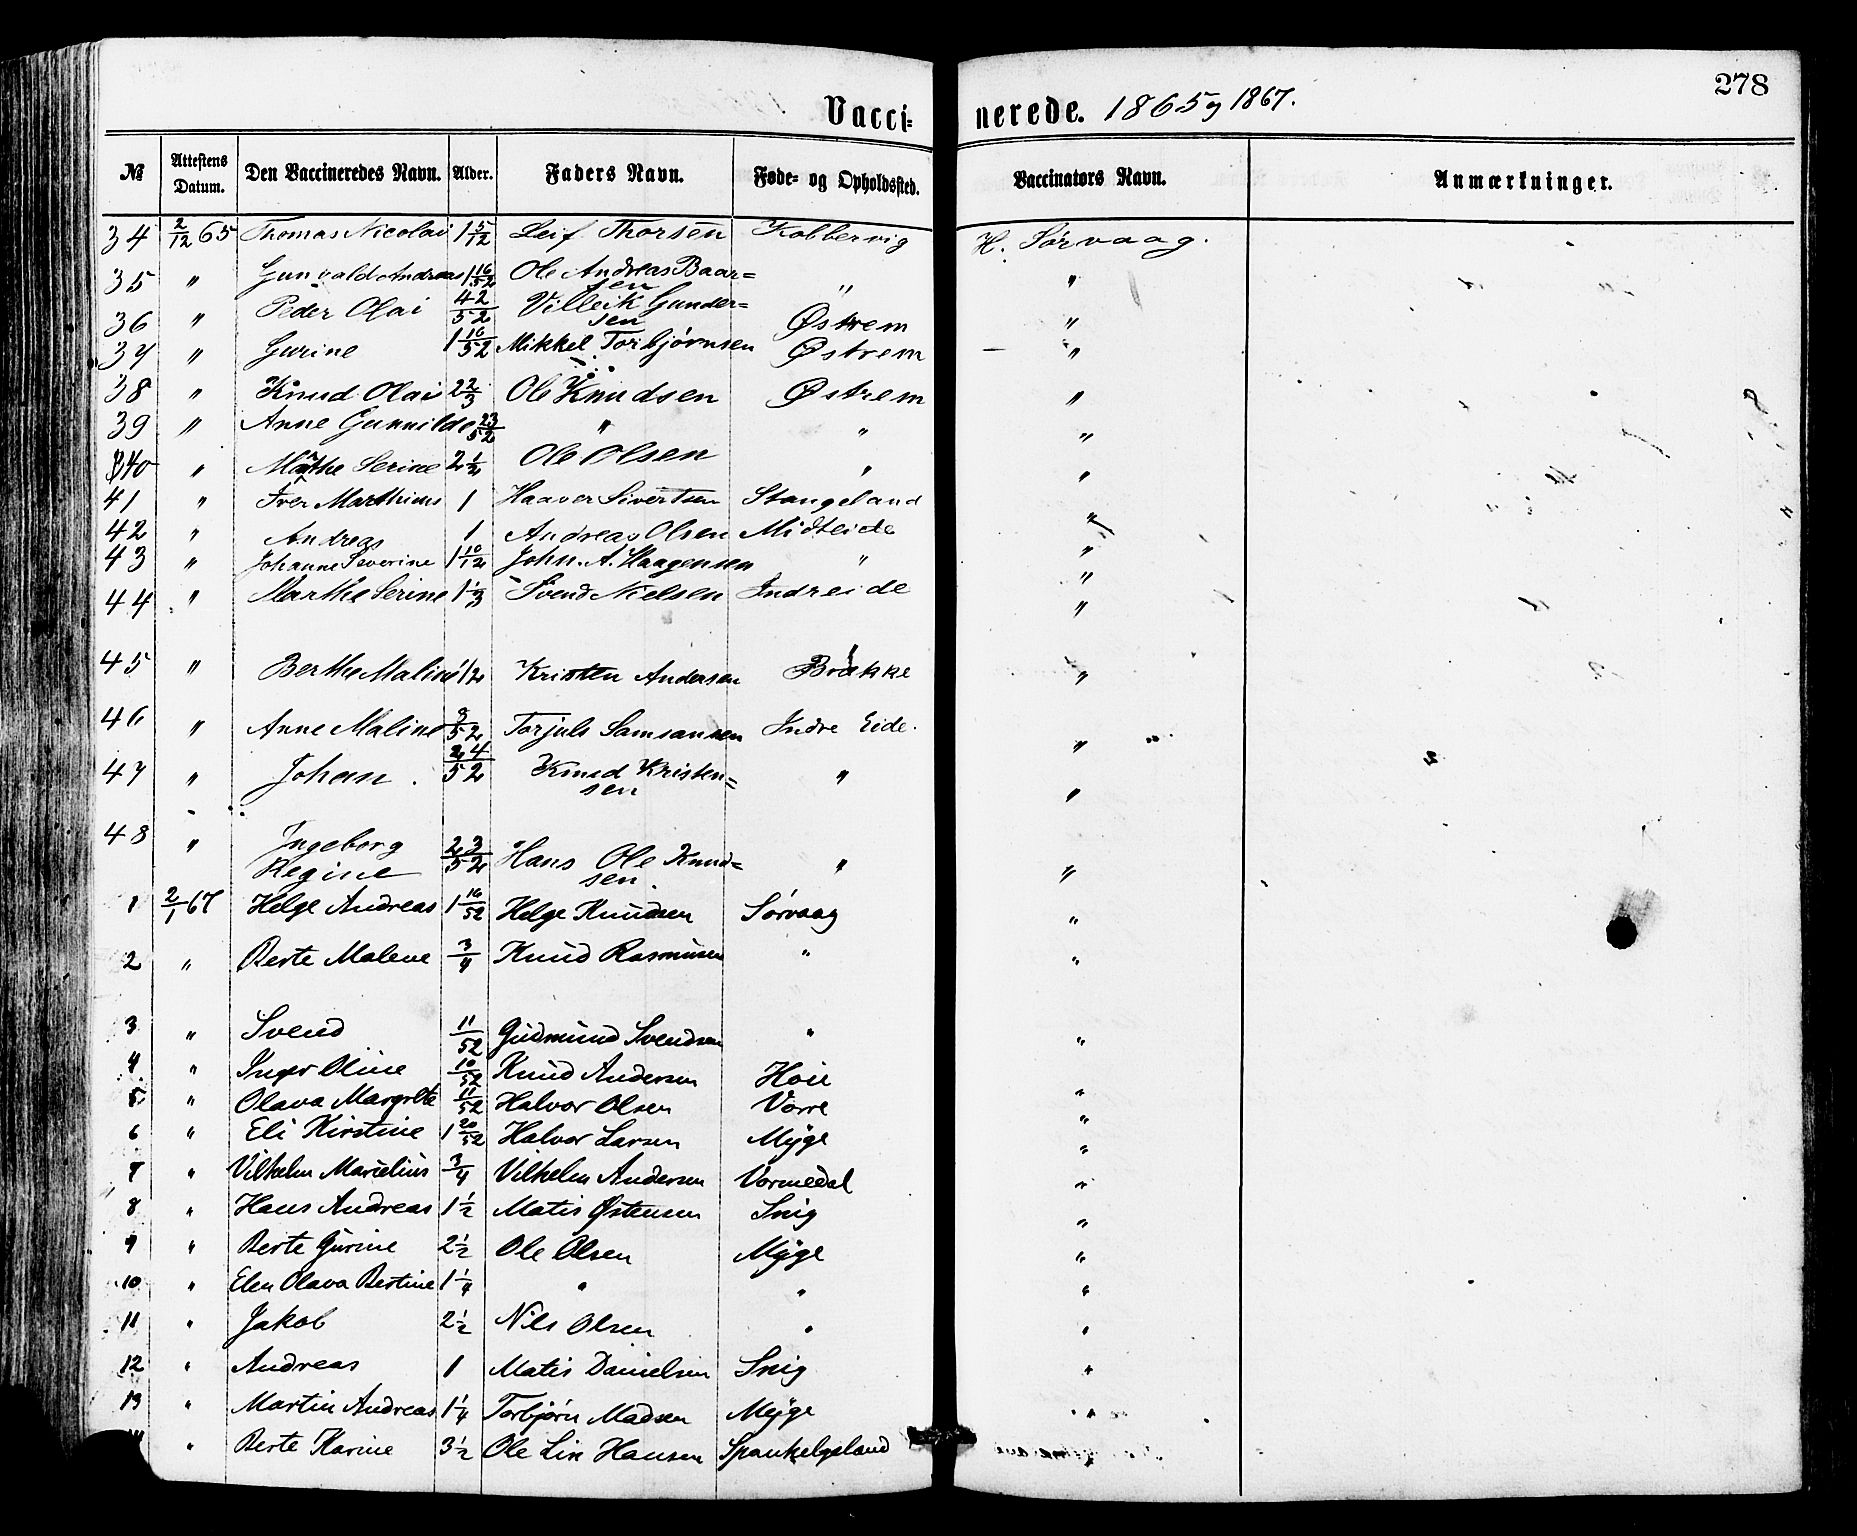 278
Vaccinerede. 1865 og 1867.
№ Attestens Datum. Den Vaccineredes Navn. Alder. Faders Navn. Føde- og Opholdssted. Vaccinators Navn. Anmærkninger.
34 2/12 65 Thomas Nicolai 1 5/12 Leif Thorsen Kobbervig H. Sørvaag.
35 " Gunvald Andreas 1 16/52 Ole Andreas Baar=
sen " "
36 " Peder Olai 42/52 Villeik Gunder=
sen Østrem "
37 " Gurine 1 16/52 Mikkel Torbjørnsen Østrem "
38 " Knud Olai 2 2/3 Ole Knudsen Østrem "
39 " Anne Gunnilde 23/52 " " "
40 " Marthe Serine 2 1/2 Ole Olsen " "
41 " Iver Marthinus 1 Haaver Sivertsen Stangeland "
42 " Andreas 1 Andreas Olsen Midteide "
43 " Johanne Severine 1 10/12 John. A. Haagensen " "
44 " Marthe Serine 1 1/3 Svend Nielsen Indreide "
45 " Berthe Maline 1/2 Kristen Andersen Brække "
46 " Anne Maline 9/52 Torjuls Samsonsen Indre Eide. "
47 " Johan. 24/52 Knud Kristen=
sen " "
48 " Ingeborg
Regine 23/52 Hans Ole Knud=
sen. " "
1 2/1 67 Helge Andreas 1 16/52 Helge Knudsen Sørvaag "
2 " Berte Malene 3/4 Knud Rasmusen " "
3 " Svend 11/52 Gudmund Svendsen " "
4 " Inger Oline 10/52 Knud Andersen Hoie "
5 " Olava Margrete 11/52 Halvor Olsen Vorre "
6 " Eli Kirstine 1 20/52 Halvor Larsen Myge "
7 " Vilhelm Marselius 3/4 Vilhelm Andersen Vormedal "
8 " Hans Andreas 1 1/2 Matis Østensen Snig "
9 " Berte Gurine 2 1/2 Ole Olsen Myge "
10 " Elen Olava Bertine 1 1/4 " " "
11 " Jakob 2 1/2 Nils Olsen " "
12 " Andreas 1 Matis Danielsen Snig "
13 " Martin Andreas 1 1/4 Torbjørn Madsen Myge "
" Berte Karine 3 1/2 Ole Lin Hansen Spankelgsland